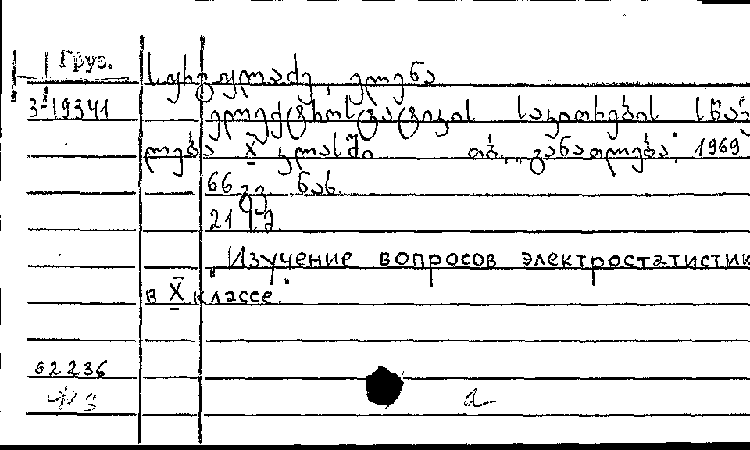 Груз.
სურგულაძე, ელენა
3-19341
ელექტროსტატიკის საკითხების სწავ
ლება X კლასში თბ., „განათლება", 1969
66 გვ. ნახ.
21
„Изучение вопросов электростатистик
в X классе."
62236